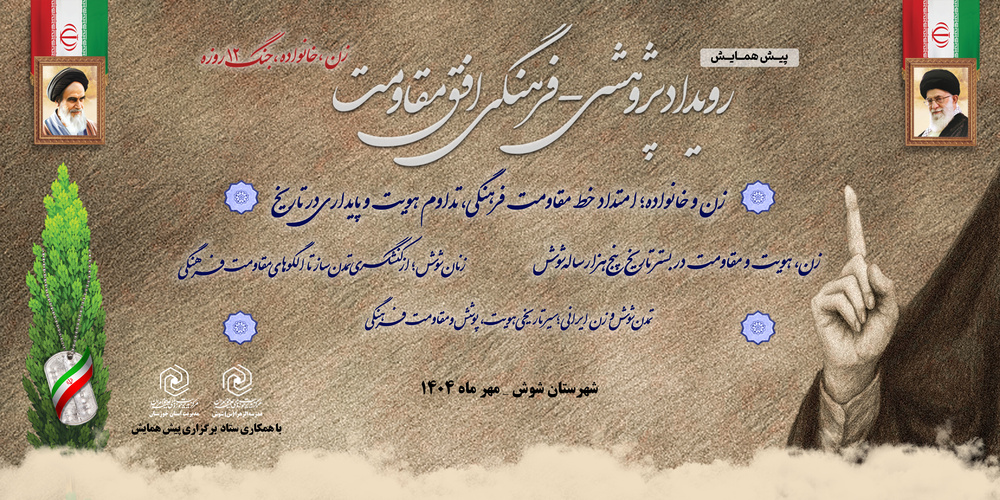 پیش همایش
زن، خانواده، جنگ ۱۲ روزه
رویداد پژوهشی - فرهنگی افق مقاومت
زن و خانواده؛ امتداد خط مقاومت فرهنگی، تداوم هویت و پایداری در تاریخ
زن، هویت و مقاومت در بستر تاریخ پنج هزار ساله شوش
زنان شوش؛ از کنشگری تمدن ساز تا الگوهای مقاومت فرهنگی
تمدن شوش و زن ایرانی؛ سیر تاریخی هویت، پوشش و مقاومت فرهنگی
شهرستان شوش _ مهر ماه ۱۴۰۴
مدیریت استان خوزستان
با همکاری ستاد برگزاری پیش همایش